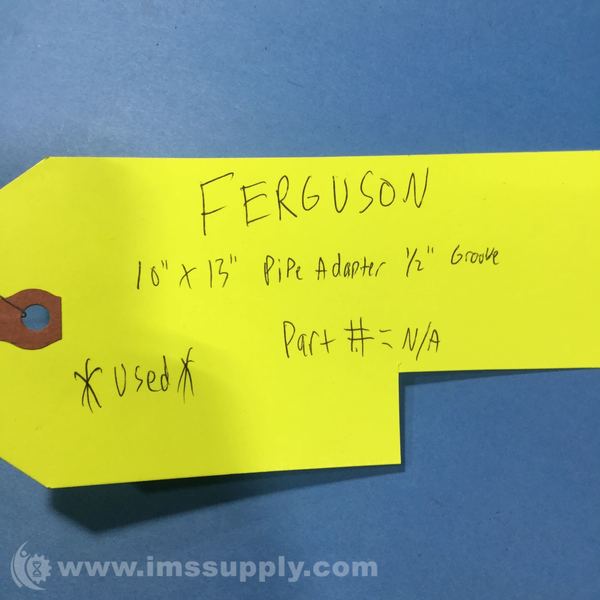 FERGUSON
10" x 13" PiPe Adapter 1/2" Groove
Part #= N/A
*Used*
www.imssupply.com